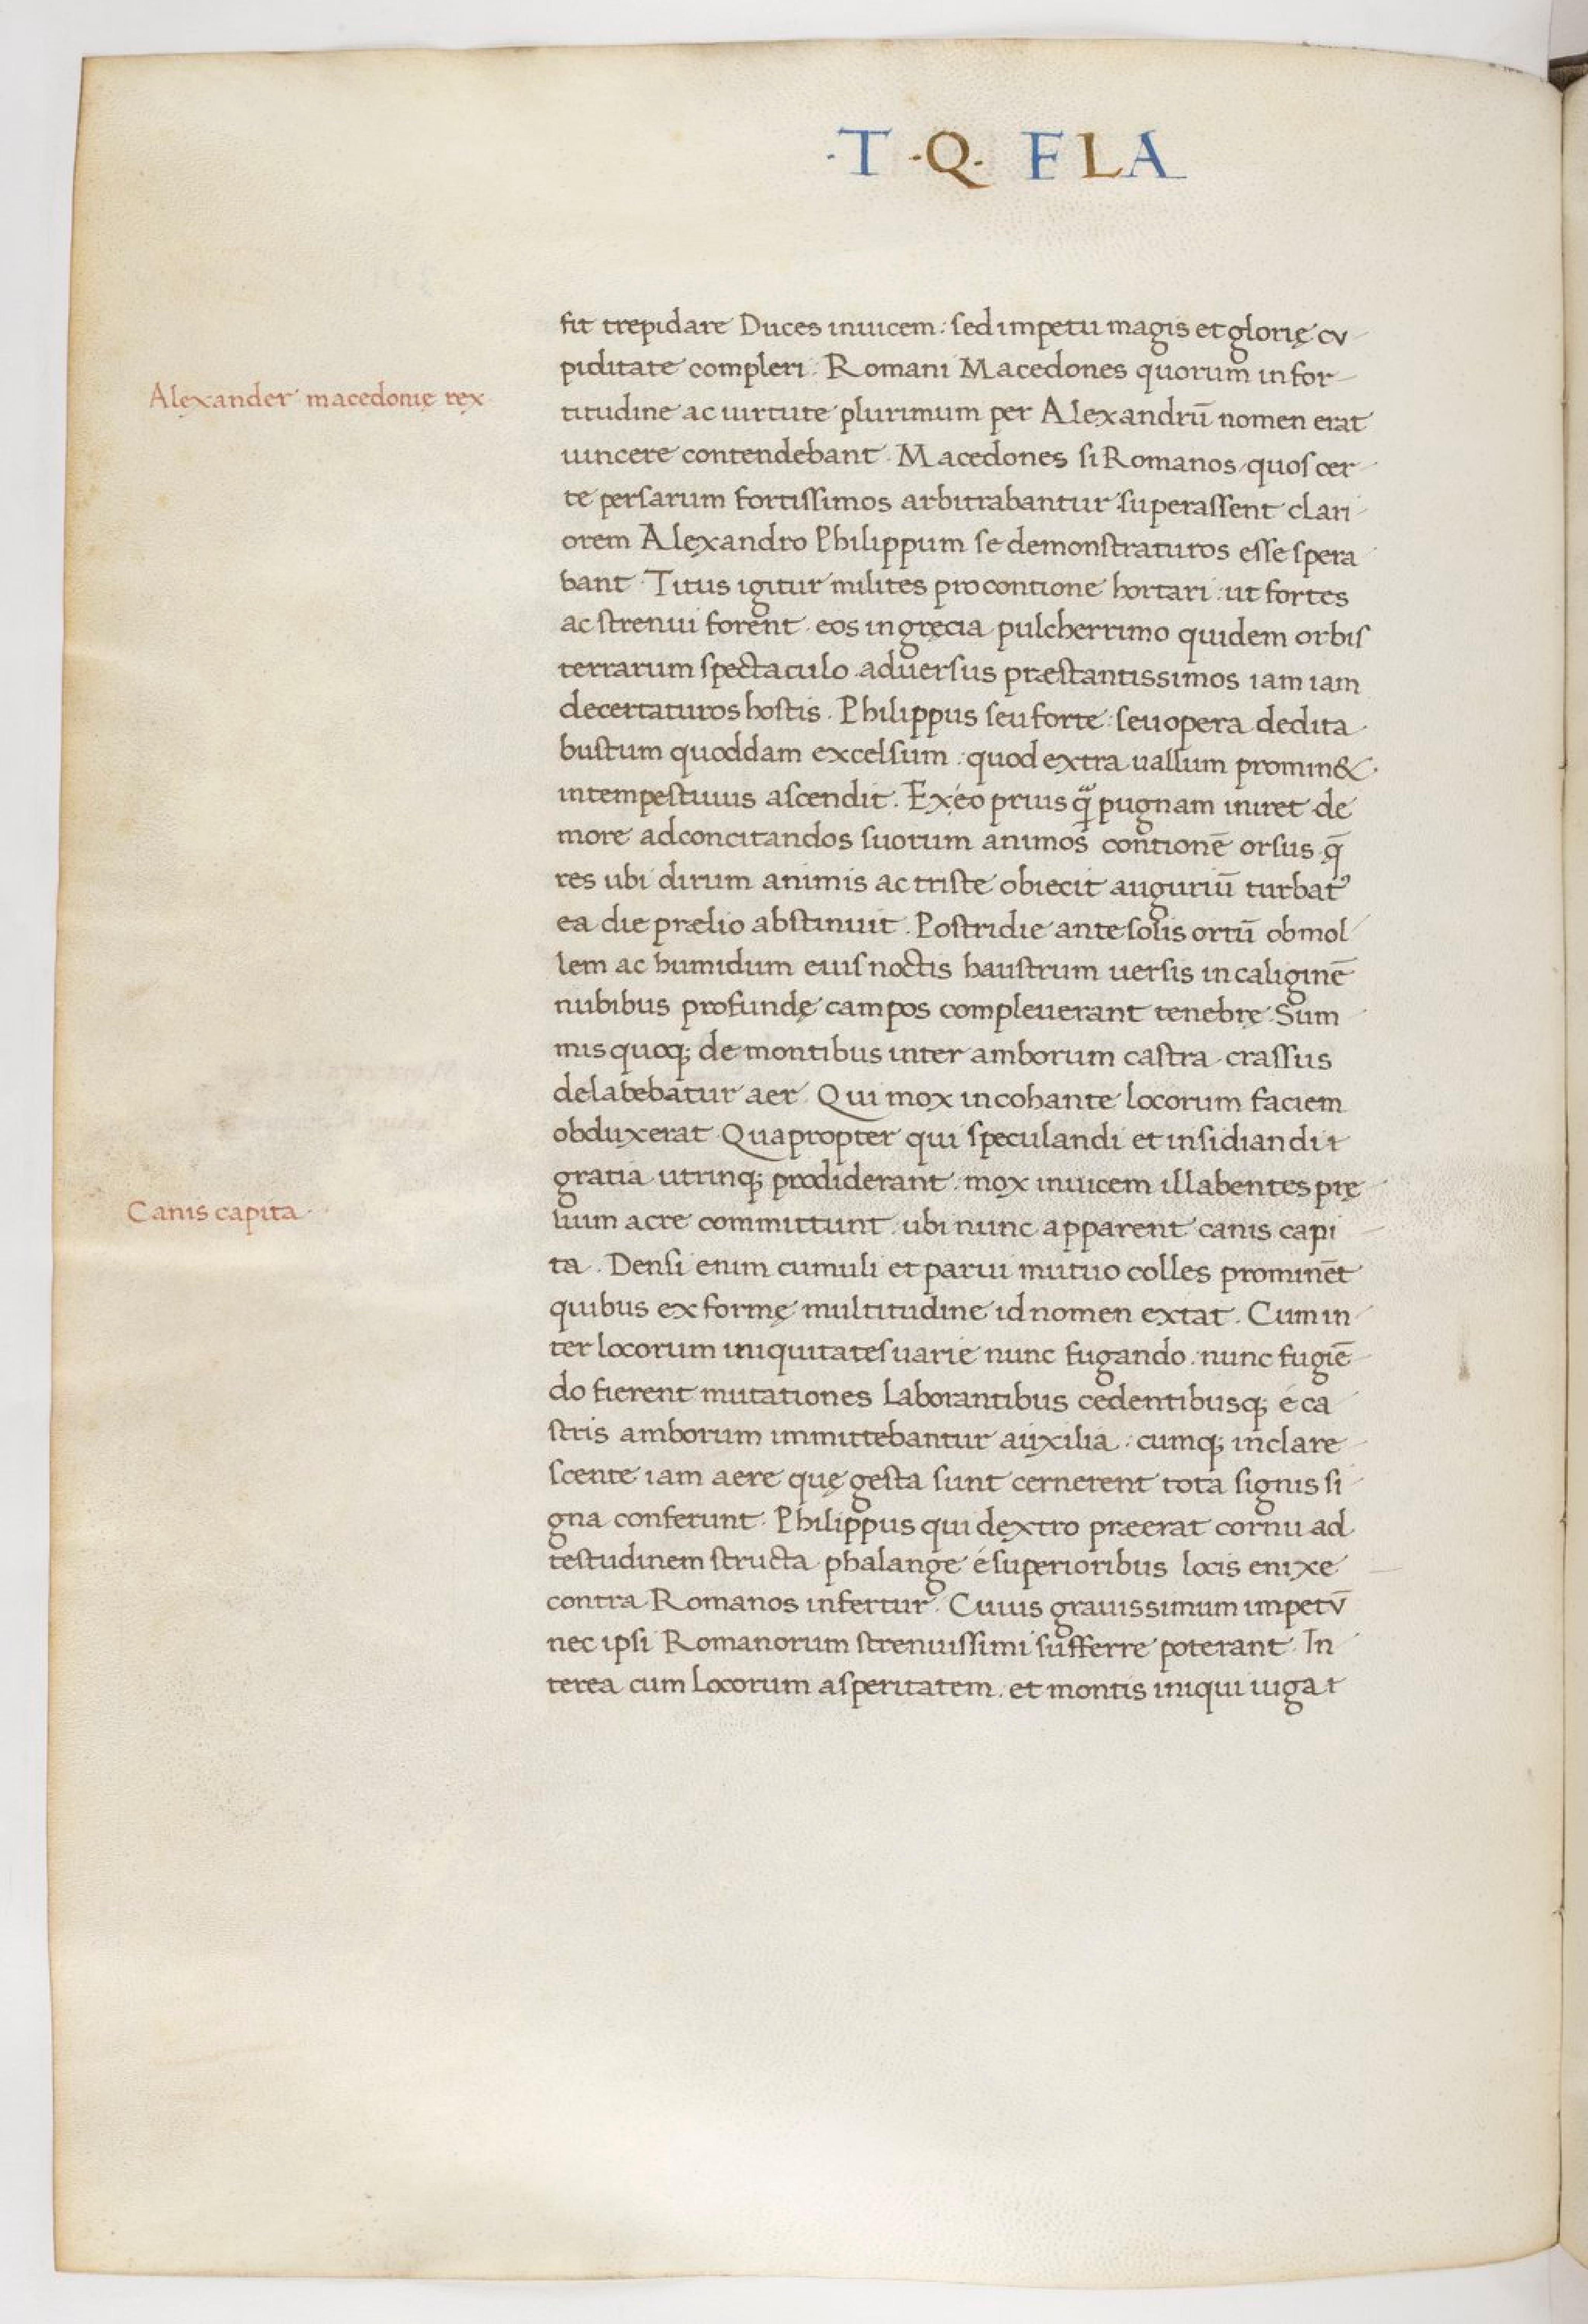 ·T·Q· FLA
fit trepidare Duces inuicem: sed impetu magis et glorię cu
piditate compleri. Romani Macedones quorum in for
Alexander macedonię rex
titudine ac uirtute plurimum per Alexandrū nomen erat
uincere contendebant. Macedones si Romanos quos cer
te persarum fortissimos arbitrabantur superassent clari
orem Alexandro Philippum se demonstraturos esse spera
bant. Titus igitur milites pro contione hortari: ut fortes
ac strenui forent. eos in gręcia pulcherrimo quidem orbis
terrarum spectaculo aduersus præstantissimos iam iam
decertaturos hostis. Philippus seu forte: seu opera dedita
bustum quoddam excelsum: quod extra uallum promin&
intempestiuus ascendit. Ex eo prius q̃ pugnam iniret de
more ad concitandos suorum animos contionē orsus q̄
res ubi dirum animis ac triste obiecit auguriū turbatꝰ
ea die prælio abstinuit. Postridie ante solis ortū ob mol
lem ac humidum eius noctis haustrum uersis in caliginē
nubibus profundę campos compleuerant tenebrę. Sum
mis quoq; de montibus inter amborum castra crassus
delabebatur aer. Qui mox incohante locorum faciem
obduxerat. Quapropter qui speculandi et insidiandi
gratia utrinq; prodiderant. mox inuicem illabentes prę
Canis capita
lium acre committunt. ubi nunc apparent canis capi
ta. Densi enim cumuli et parui mutuo colles prominēt
quibus ex formę multitudine id nomen extat. Cum in
ter locorum iniquitates uarie nunc fugando. nunc fugiē
do fierent mutationes laborantibus cedentibusq; é ca
stris amborum immittebantur auxilia: cumq; inclare
scente iam aere quę gesta sunt cernerent tota signis si
gna conferunt. Philippus qui dextro præerat cornu ad
testudinem structa phalange é superioribus locis enixe
contra Romanos infertur. Cuius grauissimum impetū
nec ipsi Romanorum strenuissimi sufferre poterant. In
terea cum locorum asperitatem. et montis iniqui iuga